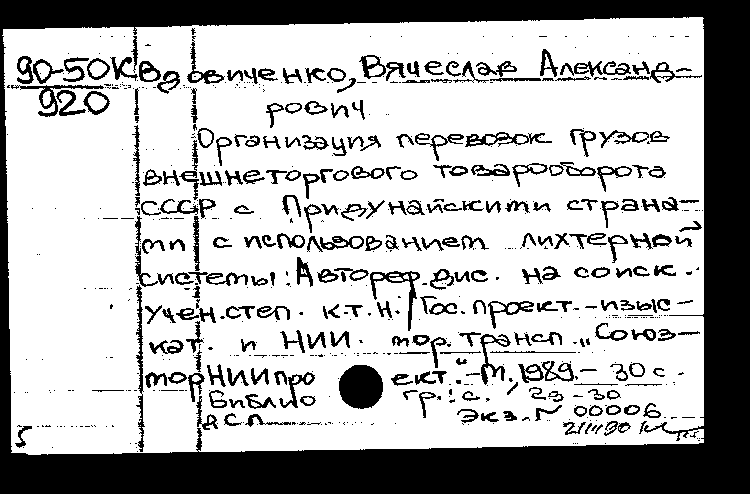 90-50К Вдовиченко, Вячеслав Александ-
920
рович
Организация перевозок грузов
внешнеторгового товарооборота
СССР с Придунайскими страна-
ми с использованием лихтерной
системы: Автореф. дис. на соиск.
учен. степ. к.т.н. / Гос. проект.-изыс-
кат. и НИИ мор. трансп. „Союз-
морНИИпроект". - М., 1989. - 30 с.
Библиогр.: с. 29-30
ДСП Экз. N 00006
5